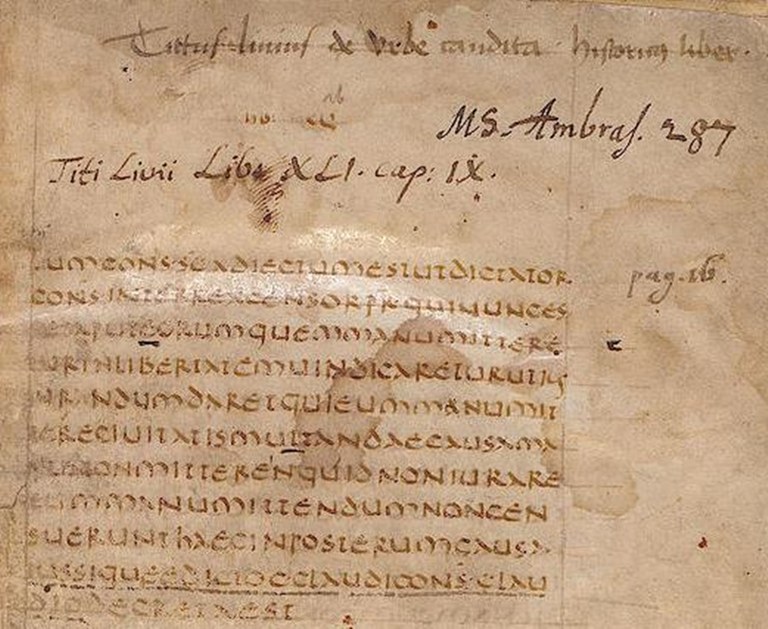 Titus livius de Urbe condita historicus liber.
MS. Ambras. 287
Titi Livii Libr XLI. cap: IX.
UMCONSSCADIECTUMESTUTDICTATOR
pag. 16.
CONSINTERREXCENSORPRQUINUNCES
ORUMQUEMMANUMITTERE
URINLIBERTATEMUINDICARETURUTIUS
URANDUMDARETQUIEUMMANUMIT
ERECIUITATISMUTANDAECAUSAMA
NONMITTERENQUIDNONIURARE
EUMMANUMITTENDUMNONCEN
SUERUNTHAECINPOSTERUMCAUSA
IUSSIQUEEDICTOCCLAUDICONSCLAU
DIODECRETAEST